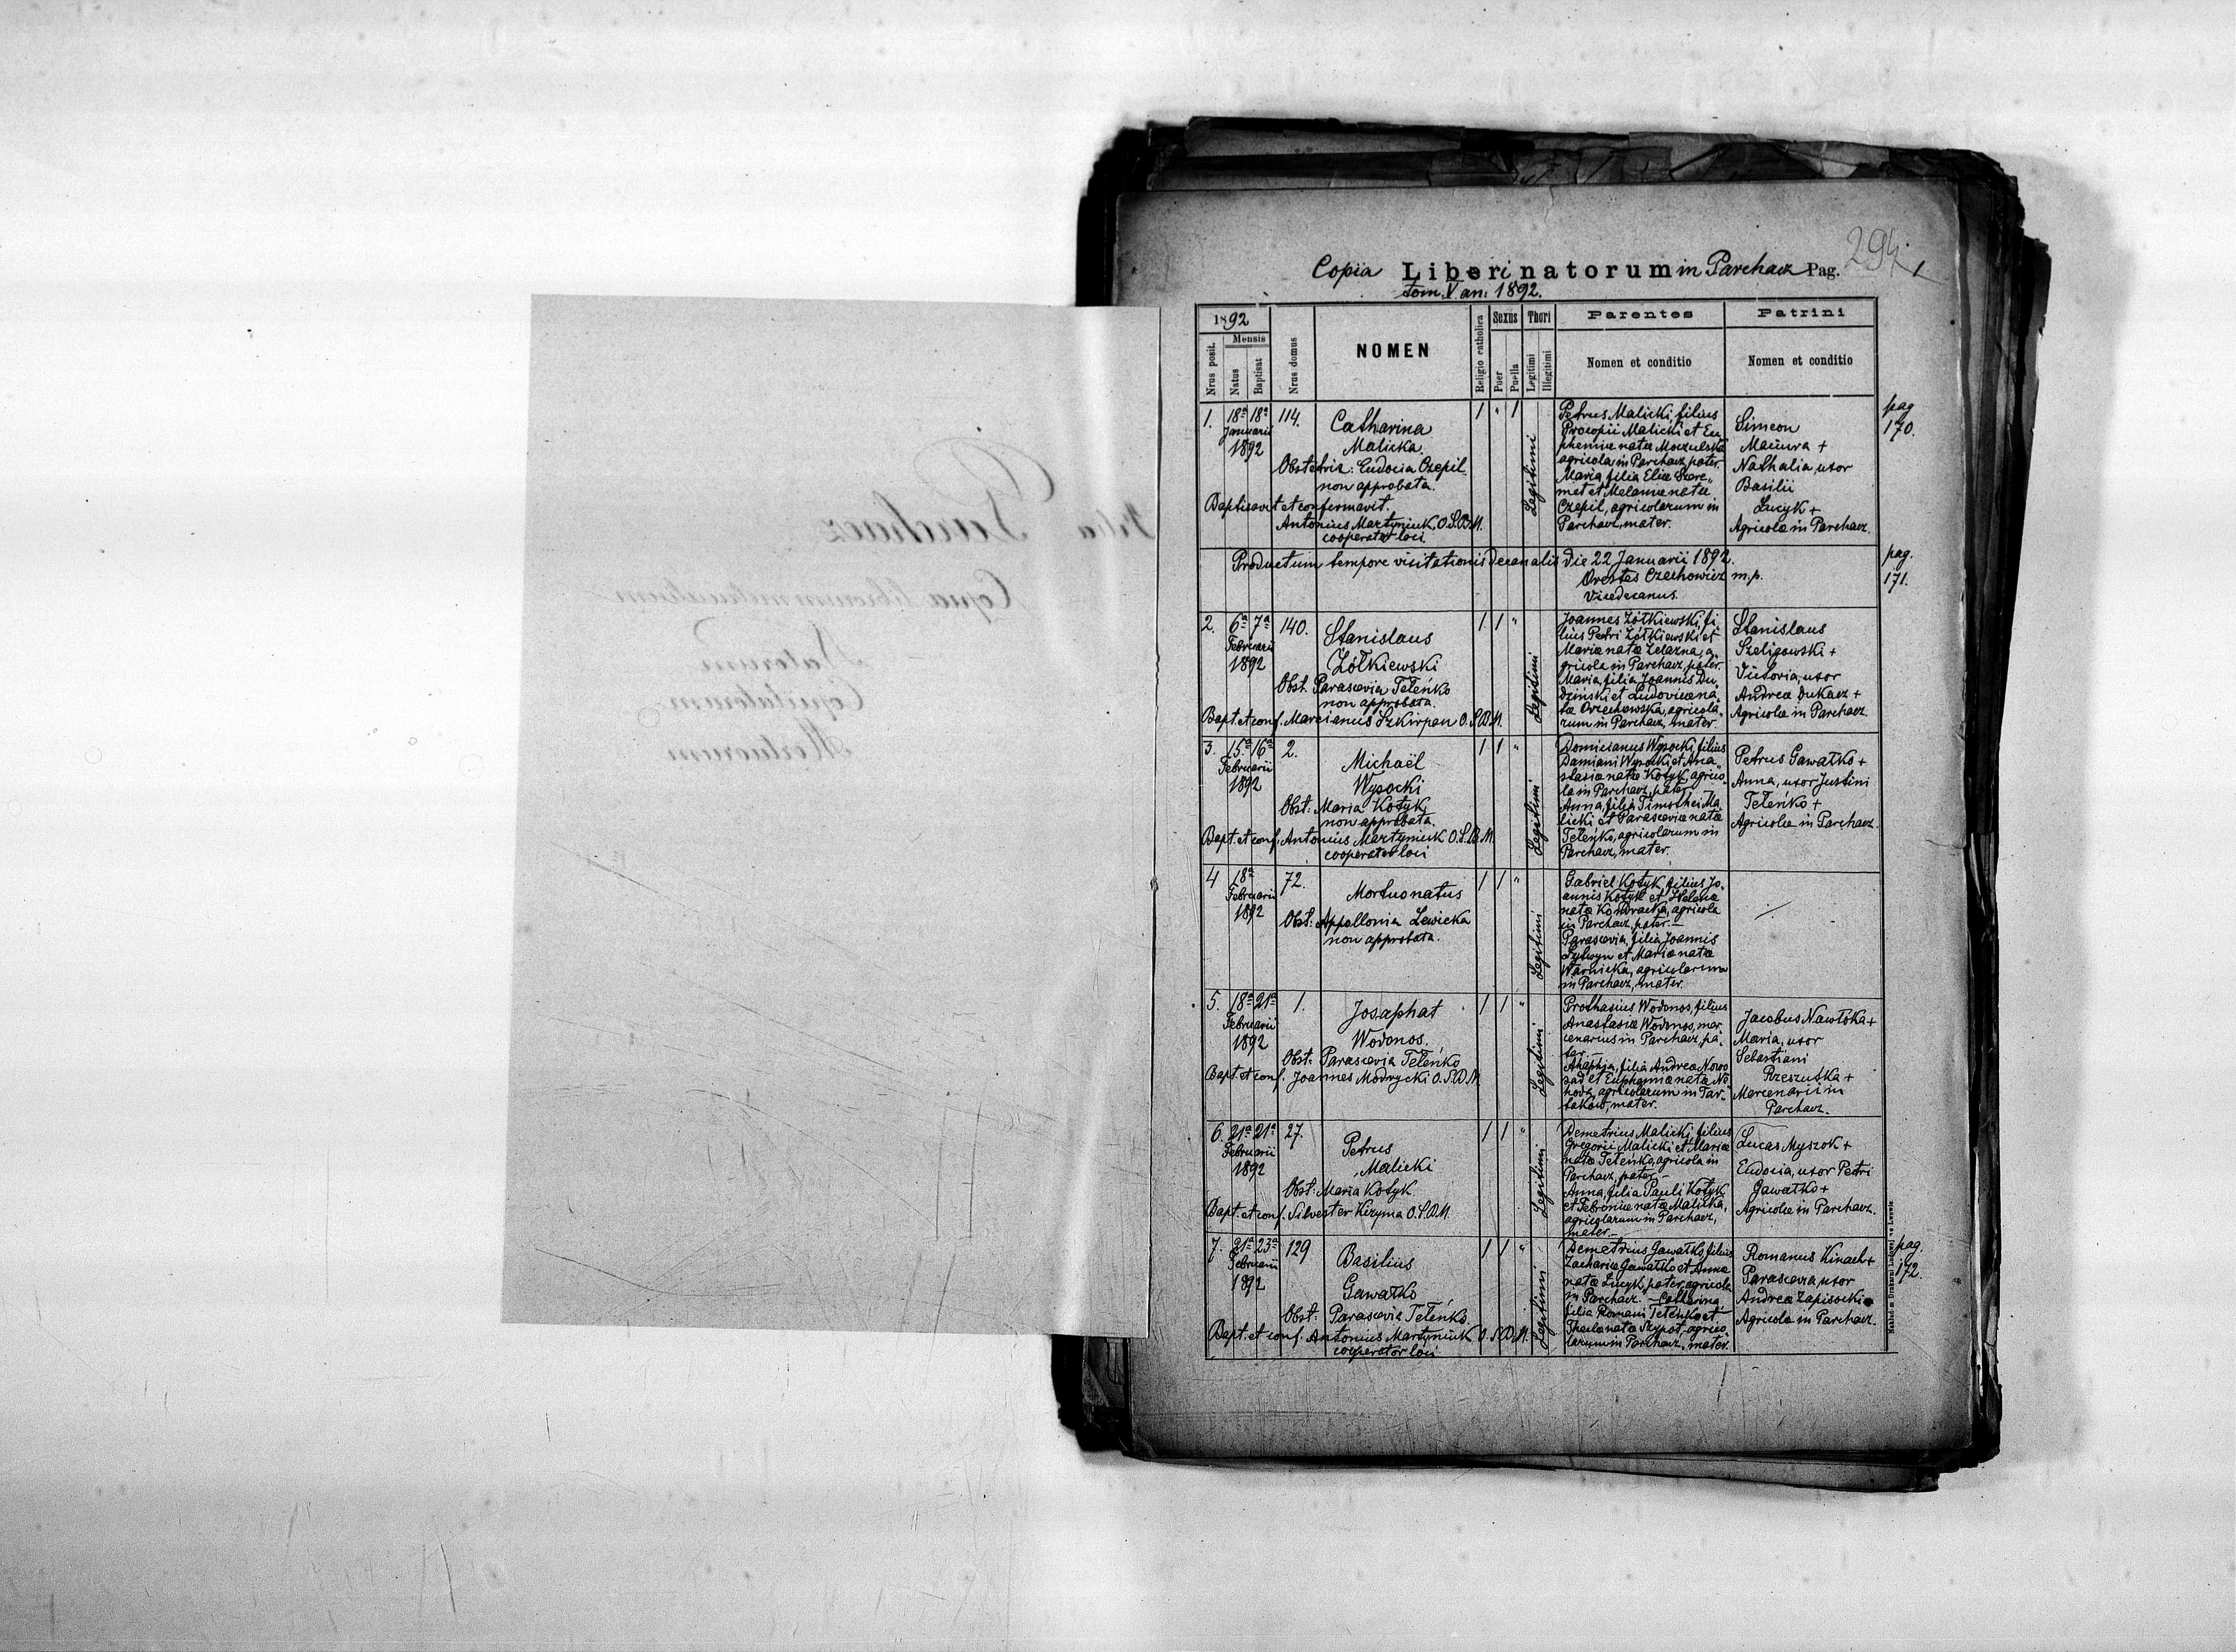 294
Copia Liberi natorum in Parchacz Pag. 1
tom. V an: 1892.
1892
Nrus posit.
Mensis
Natus
Baptisat
Nrus domus
NOMEN
Religio catholica
Sexus
Puer
Puella
Thori
Legitimi
Illegitimi
Parentes
Nomen et conditio
Patrini
Nomen et conditio
1. 18a 18a 114.
Januarii
1892
Catharina
Malicka.
Obstetrix: Eudocia Czepil
non approbata.
Baptisavit et confirmavit.
Antonius Martyniuk O.S.B.M.
cooperator loci
1 " 1
Legitimi
Petrus Malicki, filius
Procopii Malicki et Eu
phemiæ natæ Moczulska
agricola in Parchacz, pater.
Maria, filia Eliæ Szere„
met et Melaniæ natæ
Czepil, agricolarum in
Parchacz, mater.
Simeon
Mazura +
Nathalia, uxor
Basilii
Lucyk +
Agricolæ in Parchacz.
pag
170.
Productum tempore visitationis decanalis die 22 Januarii 1892.
Orestes Czechowicz m.p.
Vicedecanus.
pag.
171.
2. 6a 7a 140.
Februarii
1892
Stanislaus
Żółkiewski
Obst. Parascevia Teleńko
non approbata.
Bapt. et conf. Marcianus Szkirpan O.S.B.M.
1 1 "
Legitimi
Joannes Żółkiewski, fi
lius Petri Żółkiewski et
Mariæ natæ Żelazna, a
gricola in Parchacz, pater.
Maria, filia Joannis Du
dziński et Ludovicæ na
tæ Orzechowska, agricola
rum in Parchacz, mater
Stanislaus
Szeligowski +
Victoria, uxor
Andreæ Dukacz +
Agricolæ in Parchacz.
3. 15a 16a 2.
Februarii
1892
Michaël
Wysocki
Obst. Maria Kotyk,
non approbata.
Bapt. et conf. Antonius Martyniuk O.S.B.M.
cooperator loci
1 1 "
Legitimi
Domicianus Wysocki, filius
Damiani Wysocki et Ana„
stasiæ natæ Kotyk, agrico
la in Parchacz, pater.
Anna, filia Timothei Ma
licki et Parasceviæ natæ
Teleńko, agricolarum in
Parchacz, mater.
Petrus Gawałko +
Anna, uxor Justini
Teleńko +
Agricolæ in Parchacz.
4 18a 72.
Februarii
1892
Mortuonatus
Obst: Appollonia Lewicka
non approbata.
1 1 "
Legitimi
Gabriel Kotyk, filius Jo„
annis Kotyk et Helenæ
natæ Kondracka, agricola
in Parchacz, pater. —
Parascevia, filia Joannis
Sytwyn et Mariæ natæ
Warnicka, agricolarum
in Parchacz, mater.
5. 18a 21a 1.
Februarii
1892
Josaphat
Wodonos.
Obst: Parascevia Teleńko
Bapt. et conf. Joannes Modrycki O.S.B.M
1 1 "
Legitimi
Prothasius Wodonos, filius
Anastasiæ Wodonos, mer
cenarius in Parchacz, pa
ter. —
Ahaphia, filia Andreæ Nowo
sad et Euphemiæ natæ
agricolarum in Tar„
taków, mater.
Jacobus Nawłoka +
Maria, uxor
Sebastiani
Rzeszutka +
Mercenarii in
Parchacz.
6. 21a 21a 27.
Februarii
1892
Petrus
Malicki
Obst: Maria Kotyk.
Bapt. et conf. Silvester Kizyma O.S.B.M.
1 1 "
Legitimi
Demetrius Malicki, filius
Gregorii Malicki et Mariæ
natæ Teleńko, agricola in
Parchacz, pater
Anna, filia Pauli Kotyk
et Febroniæ natæ Malicka,
agricolarum in Parchacz,
mater. —
Lucas Myszok +
Eudocia, uxor Petri
Gawałko +
Agricolæ in Parchacz.
7. 21a 23a 129
Februarii
1892
Basilius
Gawałko
Obst: Parascevia Teleńko.
Bapt. et conf. Antonius Martyniuk O.S.B.M.
cooperator loci
1 1 "
Legitimi
Demetrius Gawałko, filius
Zachariæ Gawałko et Annæ
natæ Lucyk, pater, agricola
in Parchacz. — Catharina,
filia Romani Teleńko et
Theclæ natæ Szypot, agrico„
larum in Parchacz, mater.
Romanus Kinach +
Parascevia, uxor
Andreæ Zapisocki
Agricolæ in Parchacz.
pag.
172.
Parchacz
Copia librorum metricalium
Natorum
Copulatorum
Mortuorum